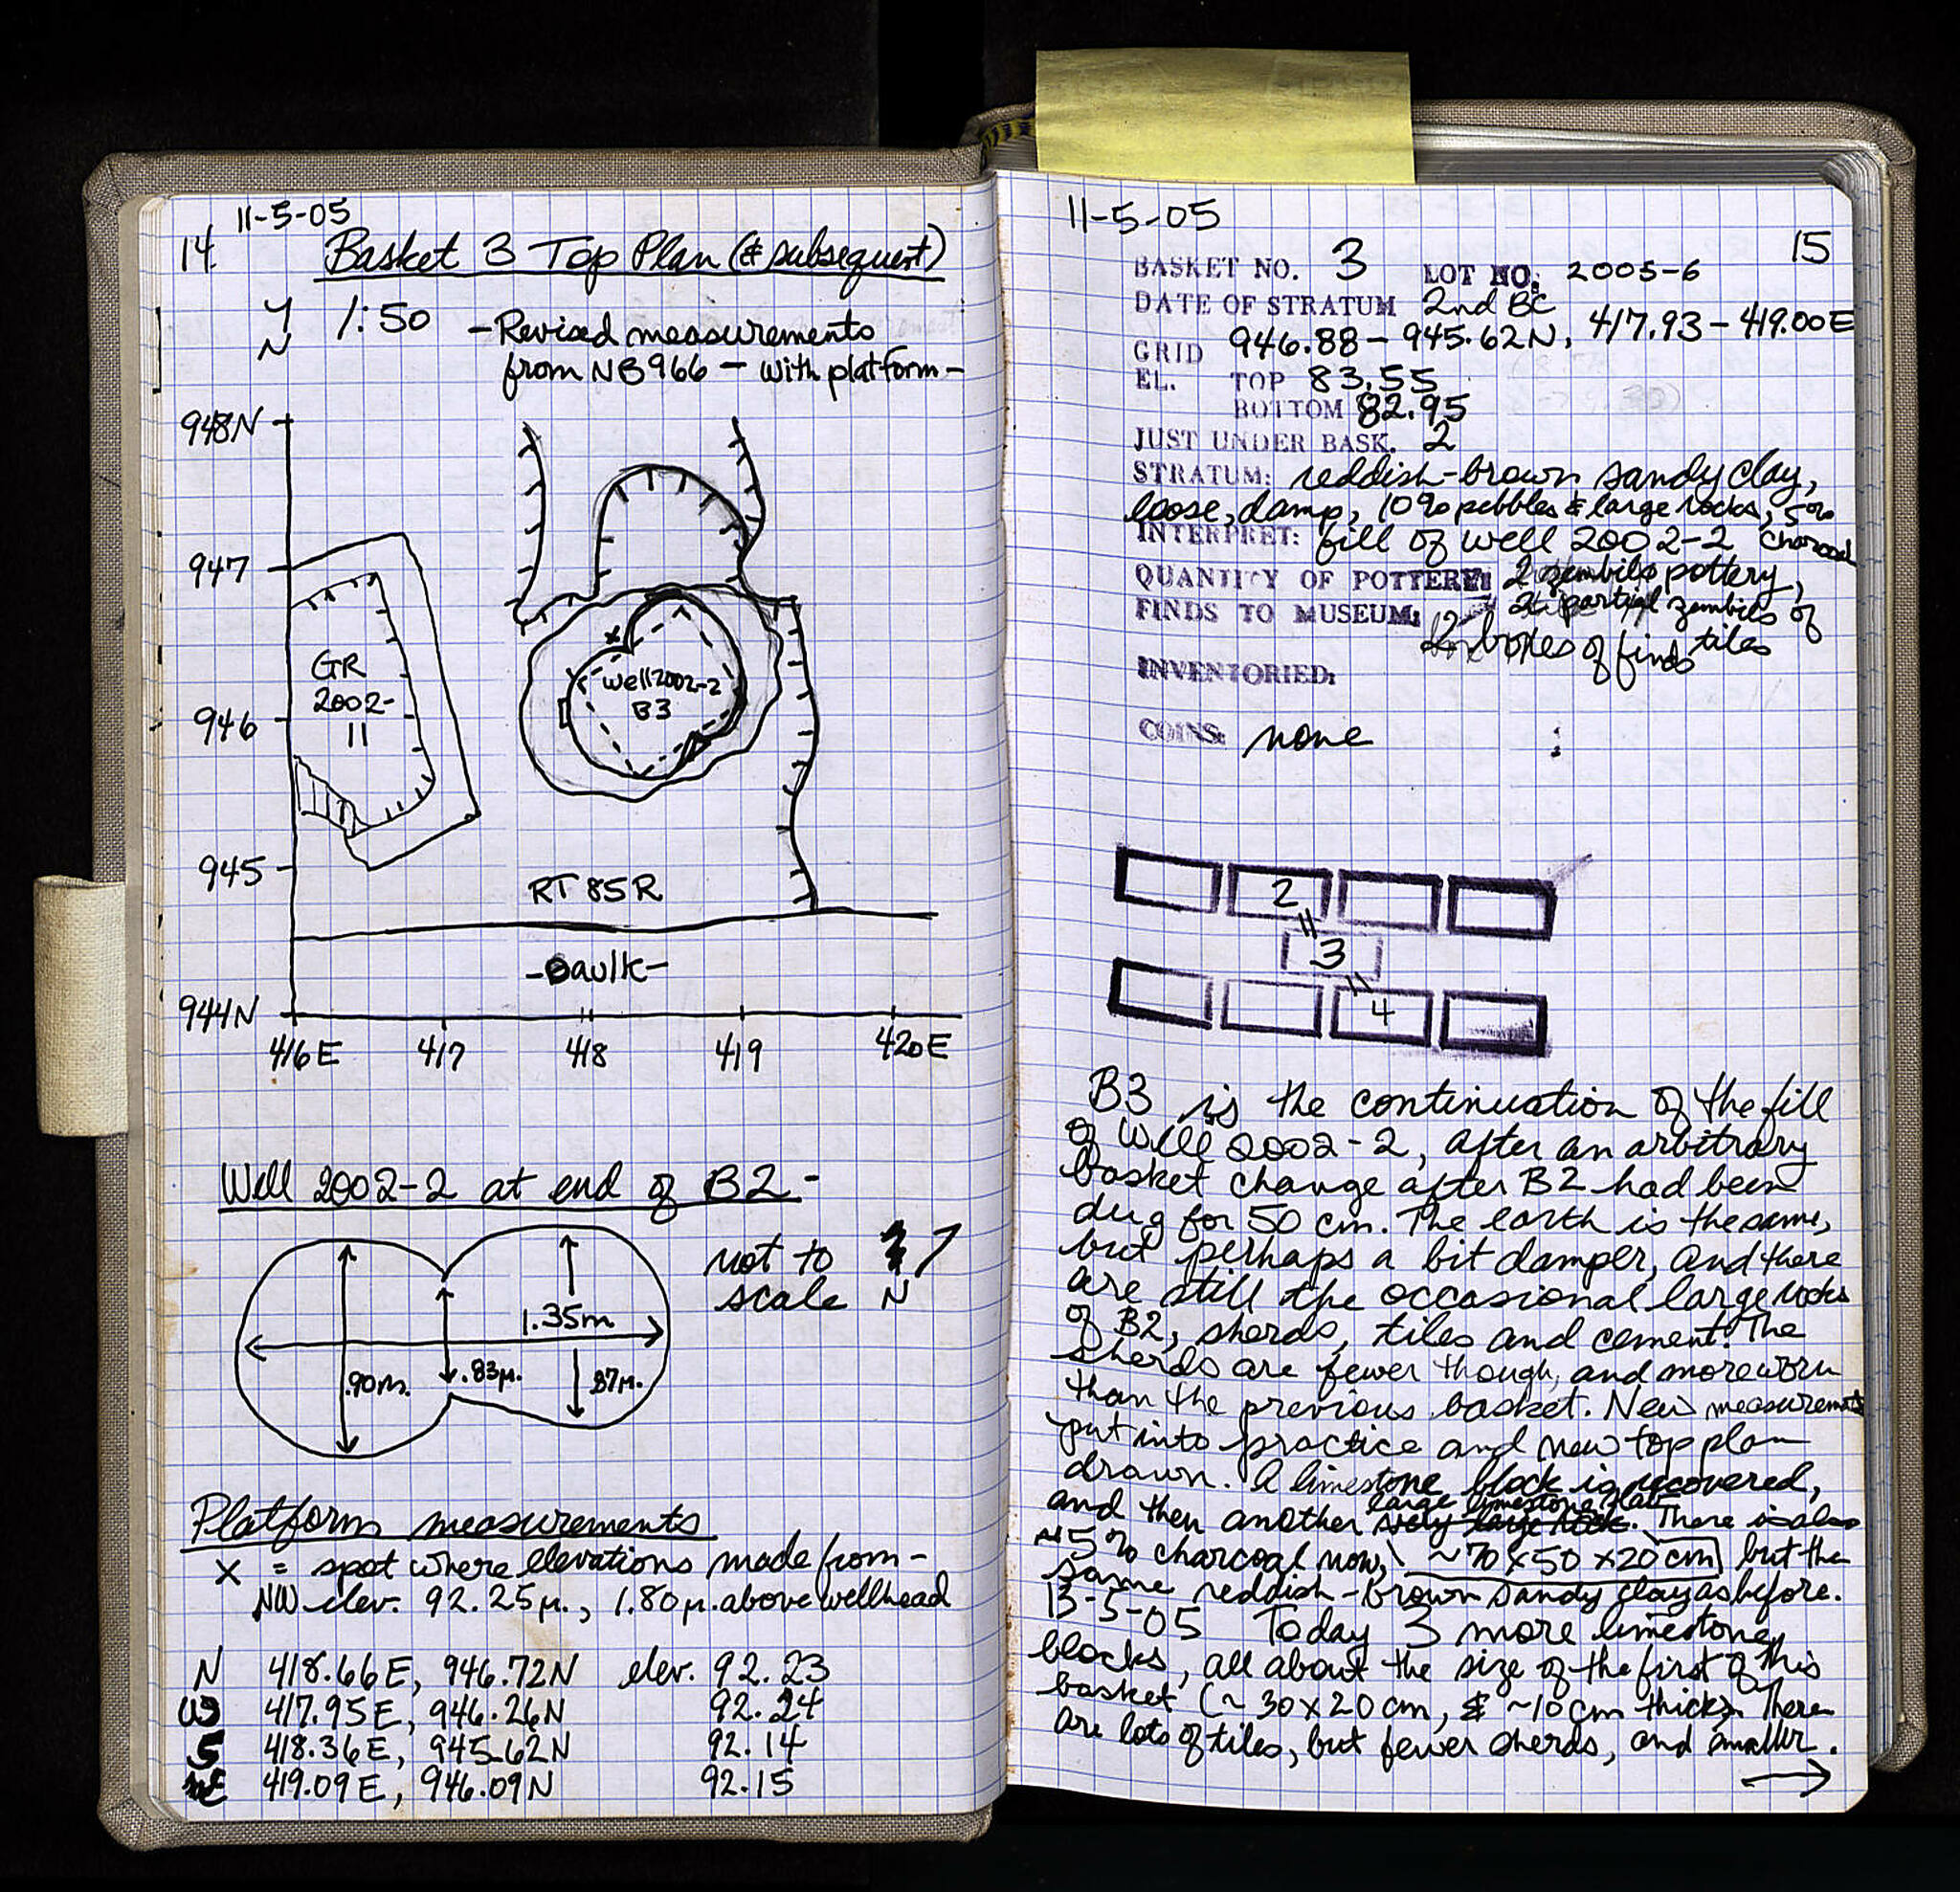 11-5-05
14. Basket 3 Top Plan (& subsequent)
N 1:50 - Revised measurements
from NB966 - with platform -
948N
947
946
945
944N
GR
2002-
11
x
Well 2002-2
B3
RT 85R
-Baulk-
416E 417 418 419 420E
Well 2002-2 at end of B2-
not to
scale N
1.35m
.90m. .83μ. .87μ.
Platform measurements
x = spot where elevations made from-
NW elev. 92.25μ., 1.80μ. above wellhead
N 418.66E, 946.72N elev. 92.23
W 417.95E, 946.26N 92.24
S 418.36E, 945.62N 92.14
E 419.09E, 946.09N 92.15
11-5-05
15
BASKET NO. 3 LOT NO. 2005-6
DATE OF STRATUM 2nd BC
GRID 946.88-945.62N, 417.93-419.00E
EL. TOP 83.55
BOTTOM 82.95
JUST UNDER BASK. 2
STRATUM: reddish-brown sandy clay,
loose, damp, 10% pebbles & large rocks, 5%
charcoal
INTERPRET: fill of well 2002-2
QUANTITY OF POTTERY: 2 zembils pottery,
2 partial zembils of
tiles
FINDS TO MUSEUM: 2 boxes of finds
INVENTORIED:
COINS: none
2
3
4
B3 is the continuation of the fill
of Well 2002-2, after an arbitrary
basket change after B2 had been
dug for 50 cm. The earth is the same,
but perhaps a bit damper, and there
are still the occasional large rocks
of B2, sherds, tiles and cement. The
sherds are fewer though, and more worn
than the previous basket. New measurements
put into practice and new top plan
drawn. A limestone block is recovered,
and then another large limestone slab. There is also
~5% charcoal now, ~70x50x20cm but the
same reddish-brown sandy clay as before.
13-5-05 Today 3 more limestone
blocks, all about the size of the first of this
basket (~30x20cm, & ~10cm thick). There
are lots of tiles, but fewer sherds, and smaller.
→